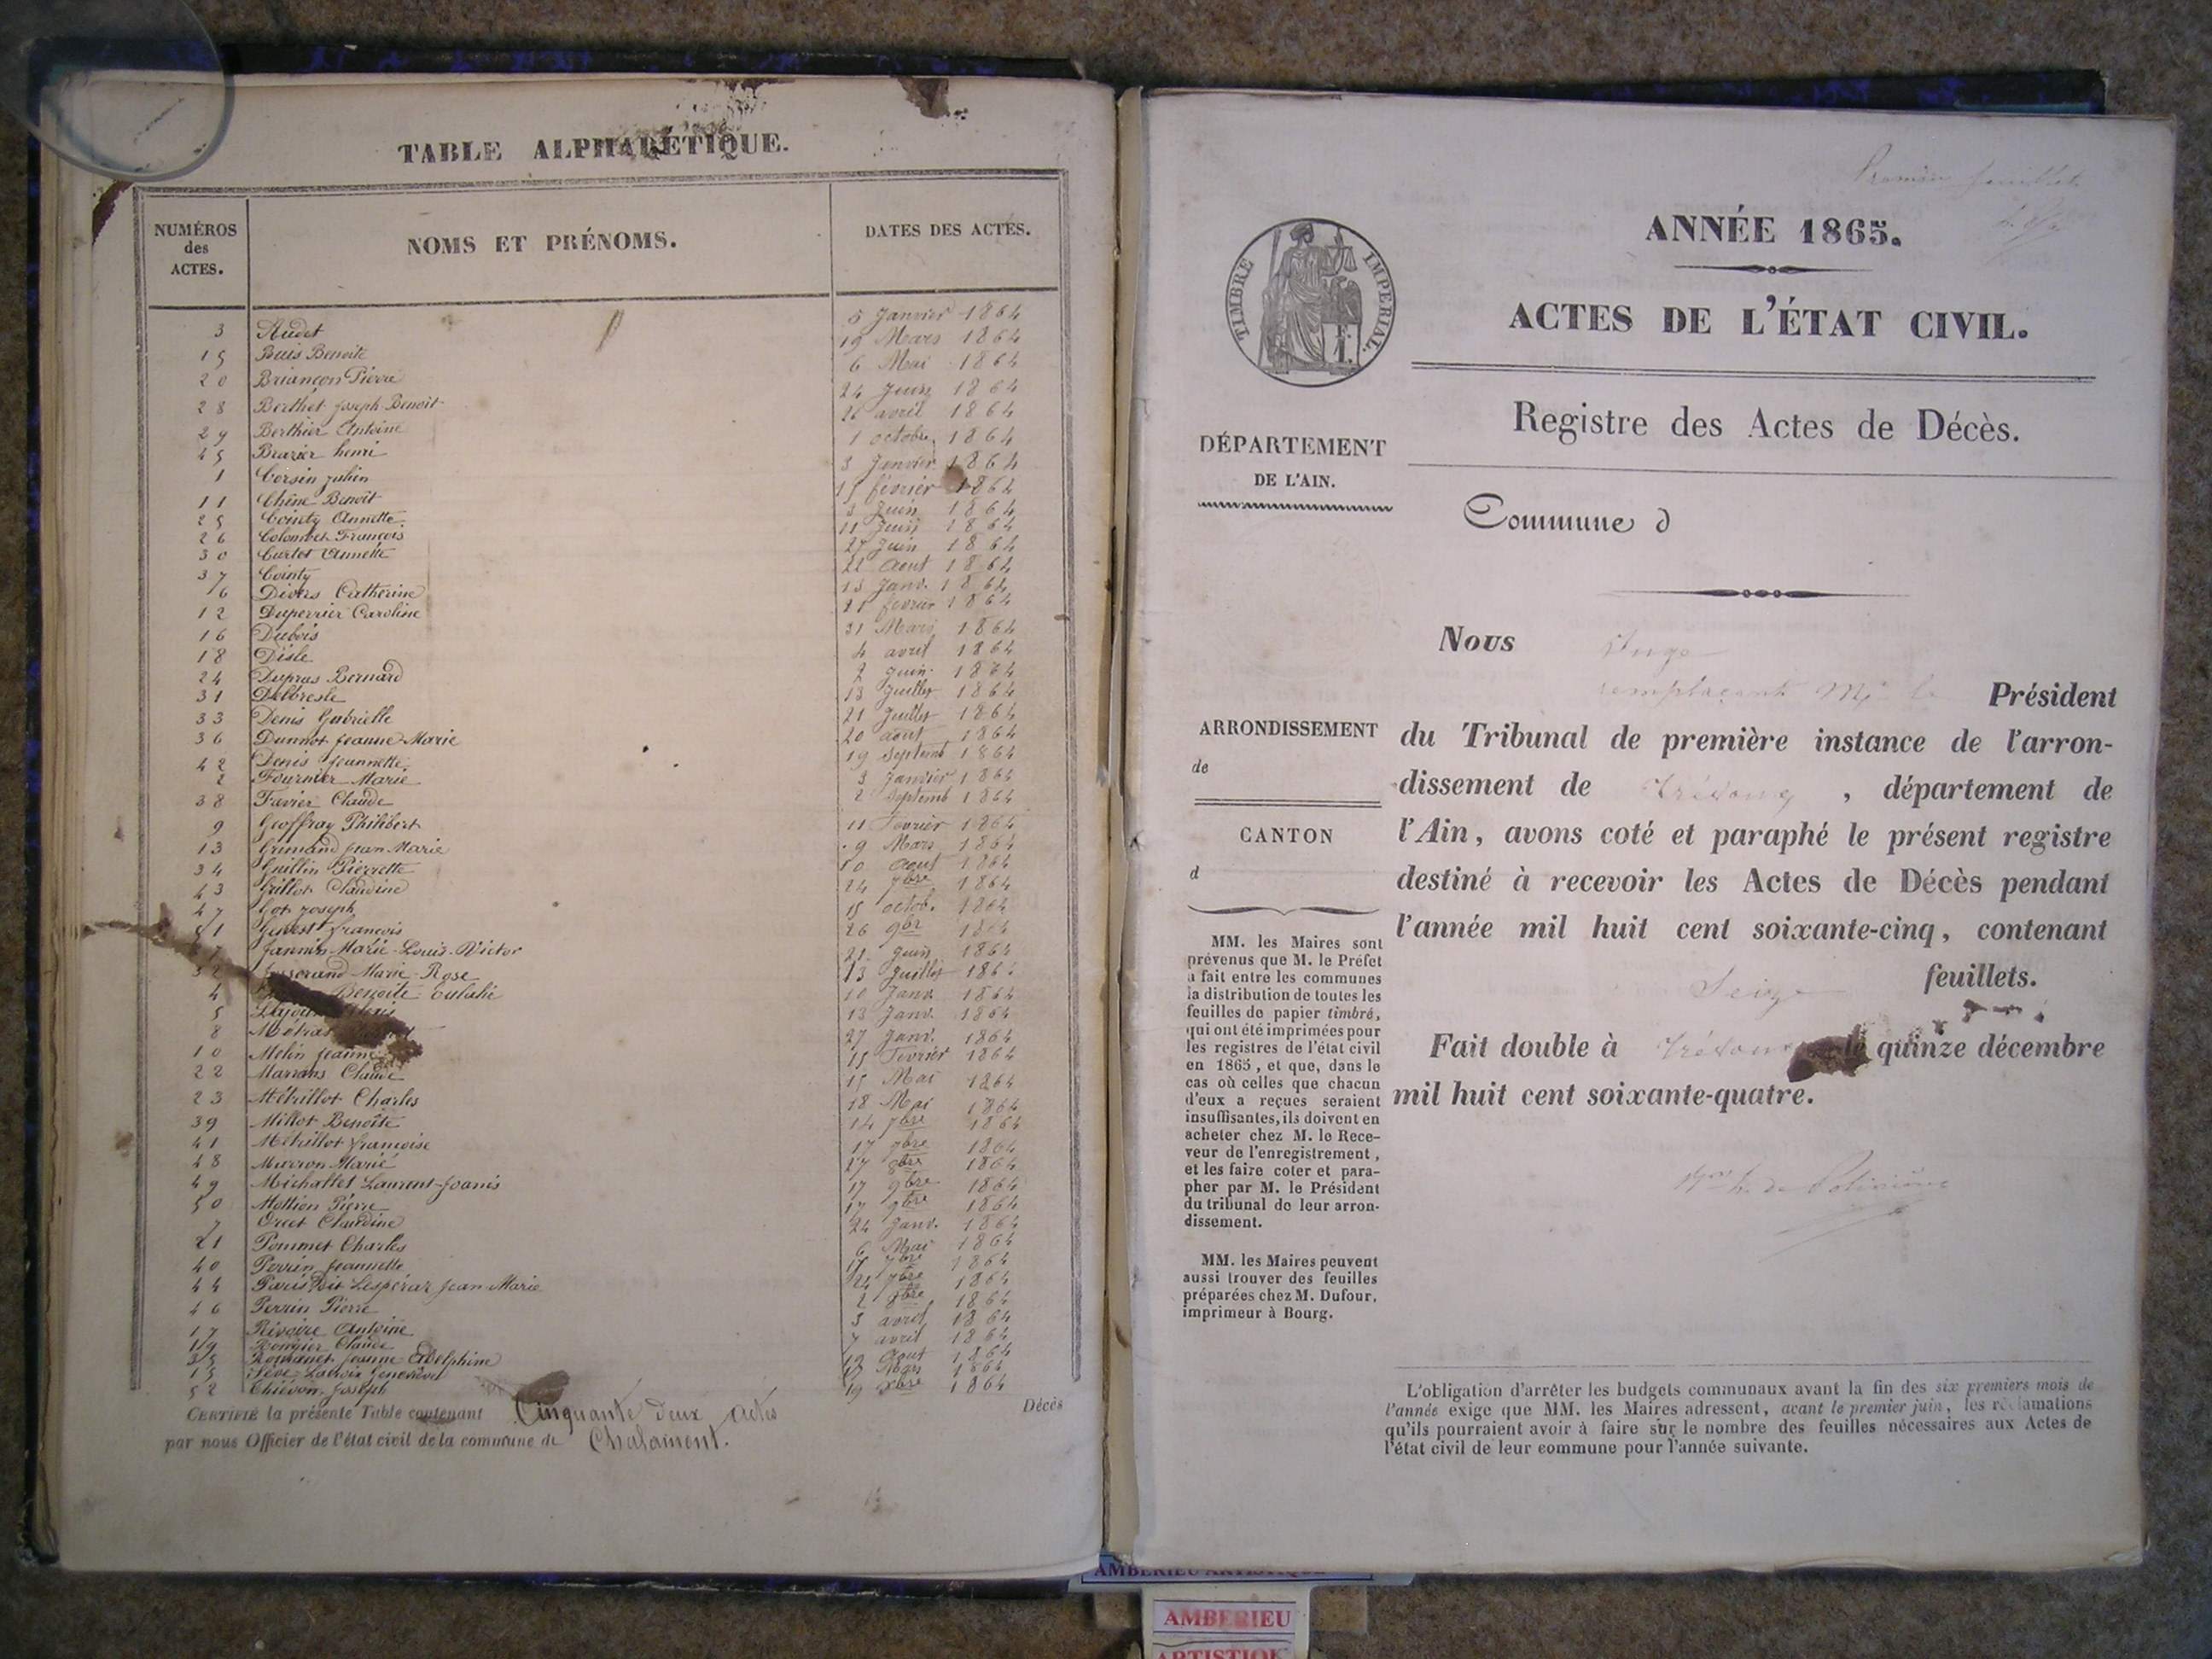 TABLE ALPHABÉTIQUE.
NUMÉROS des ACTES.
NOMS ET PRÉNOMS.
DATES DES ACTES.
3 Audet 5 Janvier 1864
15 Buis Benoite 19 Mars 1864
20 Briançon Pierre 6 Mai 1864
28 Berthet Joseph Benoit 24 Juin 1864
29 Berthier Antoine 26 avril 1864
45 Brazier henri 1 octobre 1864
1 Corsin julien 3 Janvier 1864
11 Chêne Benoit 15 février 1864
25 Cointy Annette 3 Juin 1864
26 Colombet François 11 Juin 1864
30 Curtet Annette 27 Juin 1864
37 Cointy 22 Aout 1864
6 Catherine 13 Janv. 1864
12 Duperrier Caroline 21 fevrier 1864
16 Dubois 31 Mars 1864
18 Disle 4 avril 1864
24 Dupras Bernard 2 Juin 1864
31 Delbresle 13 Juillet 1864
33 Denis Gabrielle 21 Juillet 1864
36 Dunnet Jeanne Marie 20 aout 1864
42 Denis Jeannette 19 septemb 1864
2 Fournier Marie 3 Janvier 1864
38 Favier Claude 2 septemb 1864
9 Geoffray Philibert 11 Fevrier 1864
13 Grimand Jean Marie 9 Mars 1864
34 Guillin Pierrette 10 Aout 1864
43 Grillot Claudine 24 7bre 1864
47 Got Joseph 15 octob. 1864
51 Genest françois 26 9br 1864
Jannin Marie Louis Victor 21 Juin 1864
32 Marie Rose 13 Juillet 186
4 Benoite Eulalie 10 Janv 1864
5 13 Janv. 1864
8 Métras 27 Janv. 1864
10 Melin Jeanne 15 Fevrier 1864
22 Marrans Claude 15 Mai 1864
23 Métrillot Charles 18 Mai 1864
39 Millot Benoîte 14 7bre 1864
41 Métrillot françoise 17 7bre 1864
48 Murron Marie 27 8bre 1864
49 Michallet Laurent Joanis 17 9bre 1864
50 Mollion Pierre 17 9bre 1864
7 Orcet Claudine 24 Janv. 1864
21 Pommet Charles 6 Mai 1864
40 Perrin Jeannette 17 7bre 1864
44 Paris dit Lespérar Jean Marie 24 7bre 1864
46 Perrin Pierre 2 8bre 1864
17 Rivoire Antoine 3 avril 1864
19 Rongier Claude 7 avril 1864
35 Romanet Jeanne Adelphine 12 Aout 1864
15 Lacroix Geneviève Mars 1864
52 Joseph 19 xbre 1864
CERTIFIÉ la présente Table contenant Cinquante deux actes
par nous Officier de l'état civil de la commune de Chalamont.
Décès
Premier feuillet
ANNÉE 1865.
TIMBRE IMPERIAL.
ACTES DE L'ÉTAT CIVIL.
Registre des Actes de Décès.
DÉPARTEMENT
DE L'AIN.
Commune d
Nous Juge
remplaçant Mr le Président
du Tribunal de première instance de l'arron-
dissement de Trévoux, département de
l'Ain, avons coté et paraphé le présent registre
destiné à recevoir les Actes de Décès pendant
l'année mil huit cent soixante-cinq, contenant
Seize feuillets.
Fait double à Trévoux le quinze décembre
mil huit cent soixante-quatre.
ARRONDISSEMENT
de
CANTON
d
MM. les Maires sont
prévenus que M. le Préfet
a fait entre les communes
la distribution de toutes les
feuilles de papier timbré,
qui ont été imprimées pour
les registres de l'état civil
en 1865, et que, dans le
cas où celles que chacun
d'eux a reçues seraient
insuffisantes, ils doivent en
acheter chez M. le Rece-
veur de l'enregistrement,
et les faire coter et para-
pher par M. le Président
du tribunal de leur arron-
dissement.
MM. les Maires peuvent
aussi trouver des feuilles
préparées chez M. Dufour,
imprimeur à Bourg.
L'obligation d'arrêter les budgets communaux avant la fin des six premiers mois de
l'année exige que MM. les Maires adressent, avant le premier juin, les réclamations
qu'ils pourraient avoir à faire sur le nombre des feuilles nécessaires aux Actes de
l'état civil de leur commune pour l'année suivante.
AMBERIEU ARTISTIQUE
AMBERIEU
ARTISTIQUE